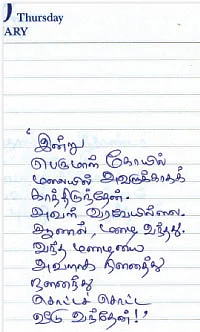 Thursday
ARY
‘இன்று
பெருமாள் கோயில்
மலையில் அவளுக்காகக்
காத்திருந்தேன்.
அவள் வரவேயில்லை.
ஆனால், மழை வந்தது.
வந்த மழையை
அவளாக நினைத்து
நனைந்து
சொட்டச் சொட்ட
வீடு வந்தேன்!’